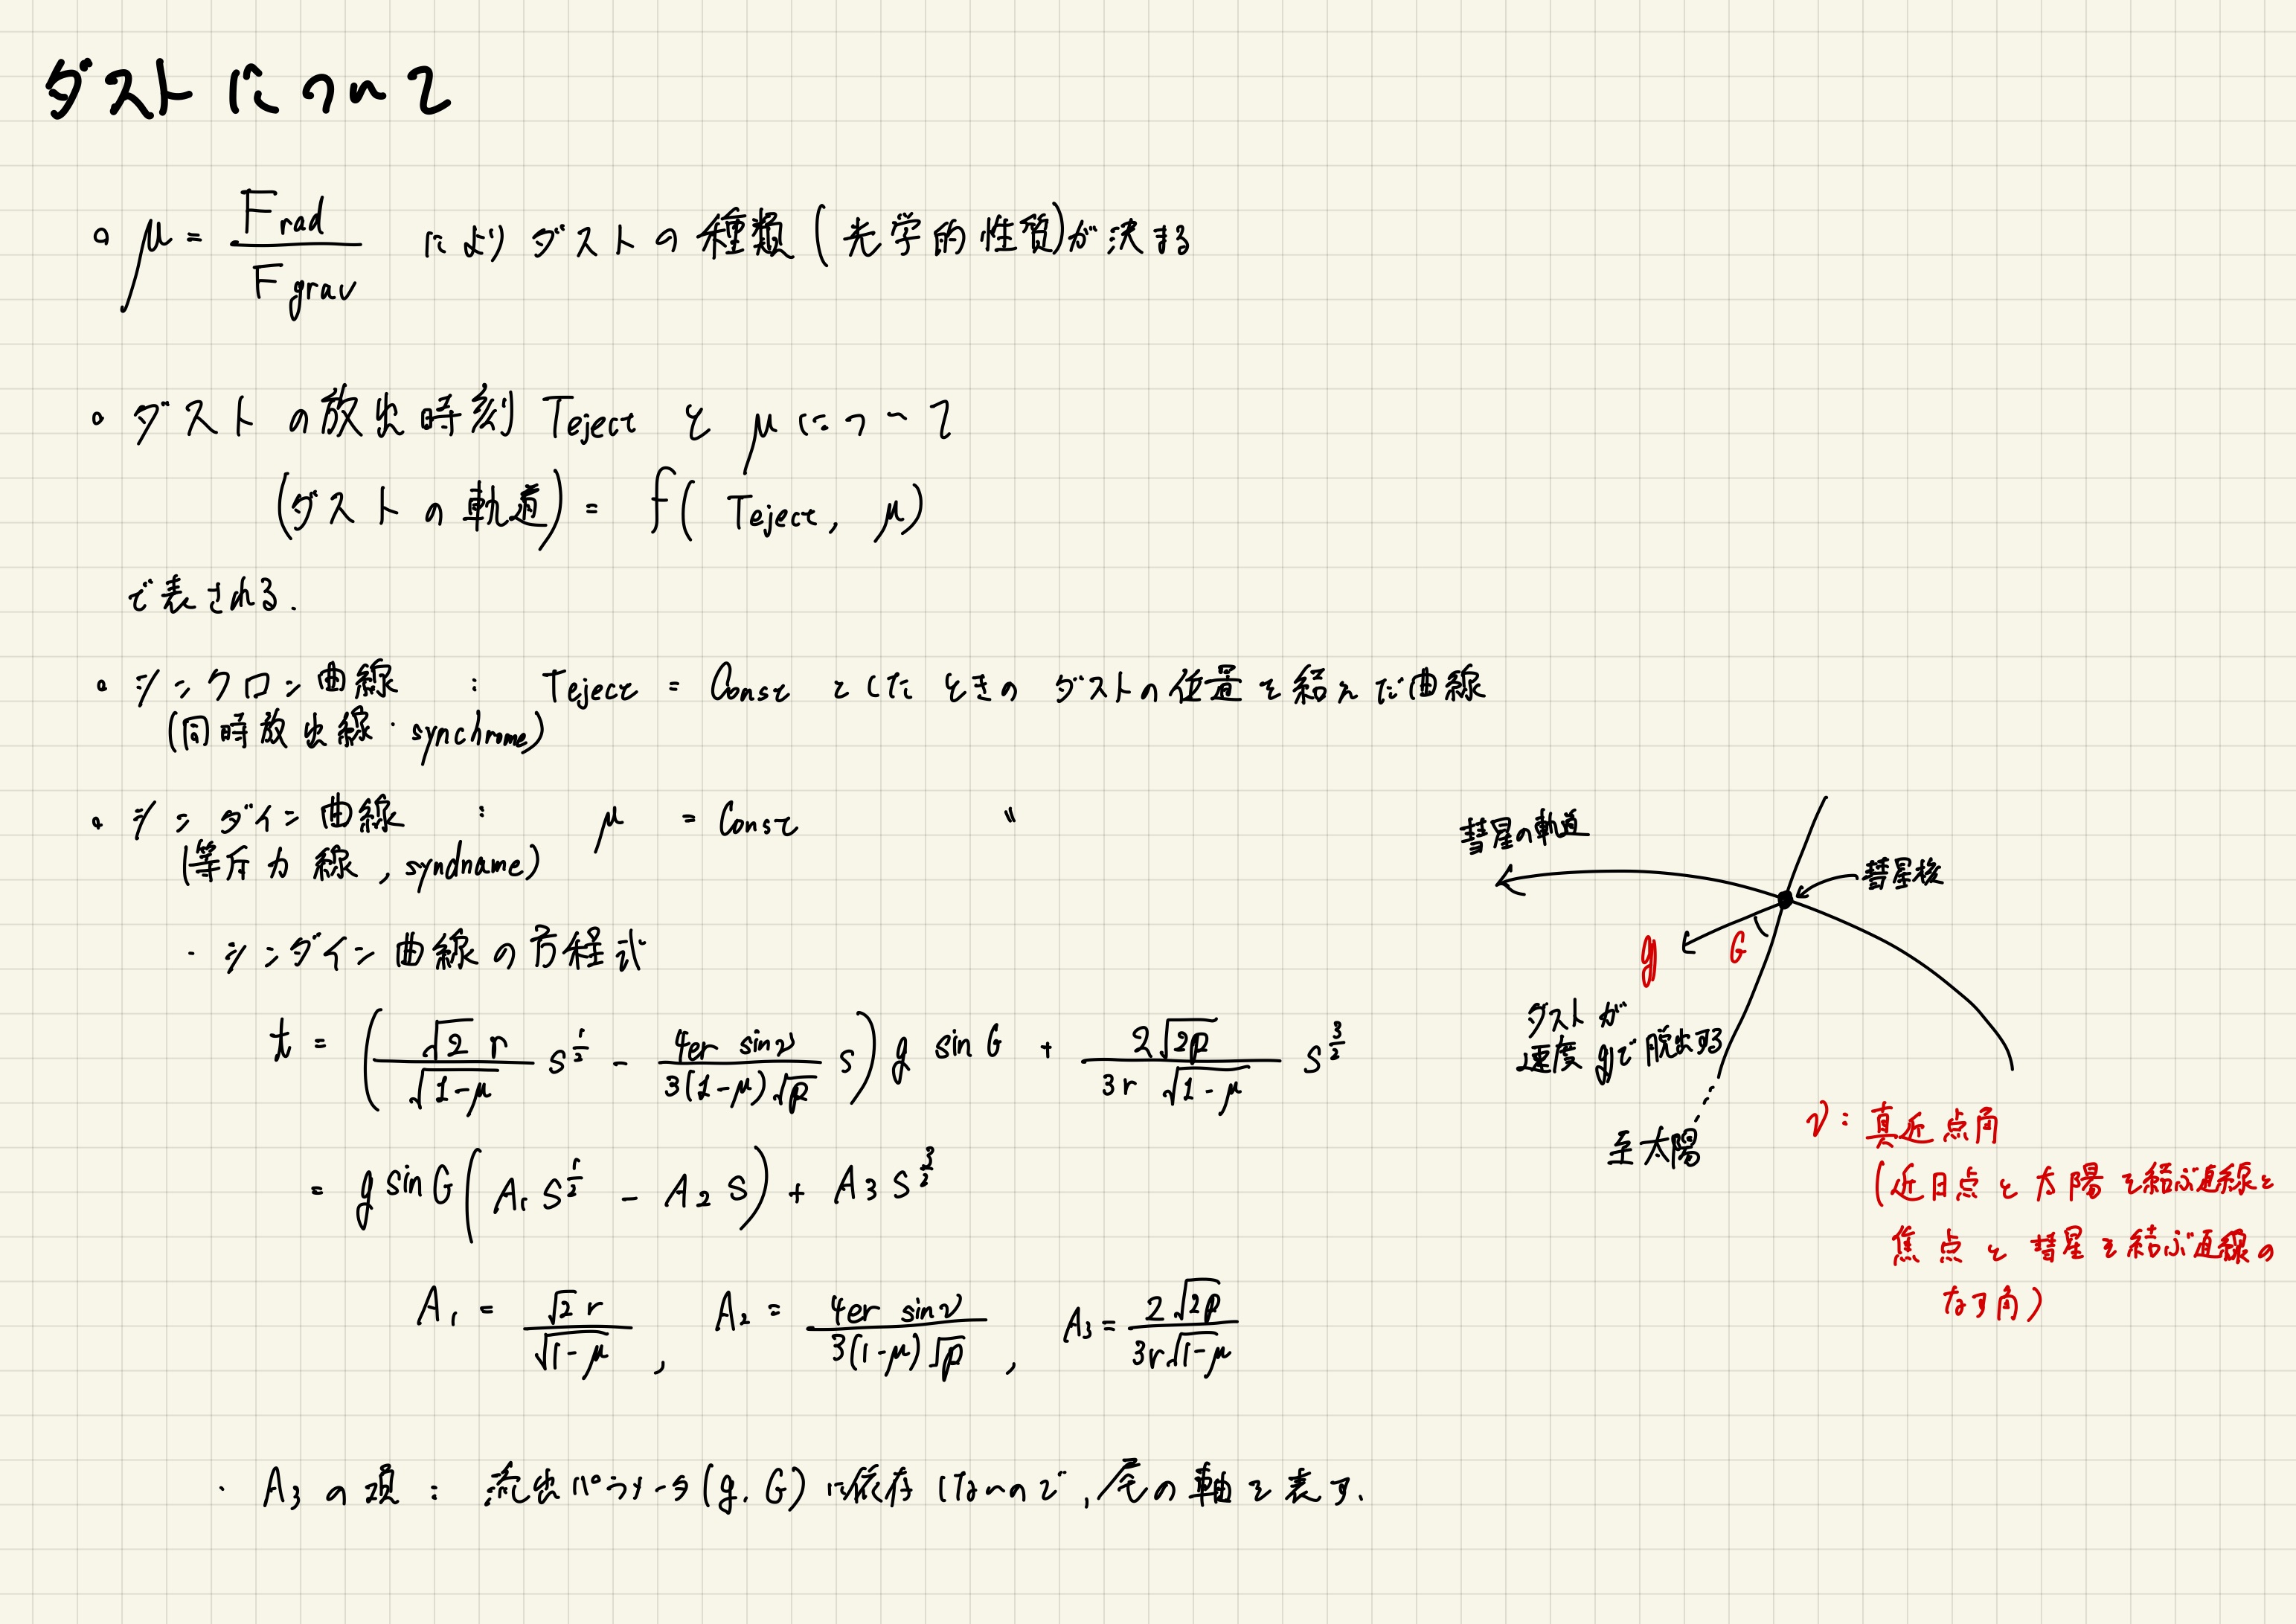 ダストについて
。μ = F rad / F grav によりダストの種類(光学的性質)が決まる
。ダストの放出時刻 Teject と μについて
(ダストの軌道) = f( Teject, μ)
で表される.
。シンクロン曲線 : Teject = Const としたときの ダストの位置を結んだ曲線
(同時放出線・synchrome)
。シンダイン曲線 : μ = Const 〃
(等斥力線, syndname)
・シンダイン曲線の方程式
t = (√2 r / √(1-μ) s^(1/2) - 4er sinν / 3(1-μ)√p s) g sin G + 2√(2p) / 3r √(1-μ) s^(3/2)
= g sin G (A₁ s^(1/2) - A₂ s) + A₃ s^(3/2)
A₁ = √2 r / √(1-μ) , A₂ = 4er sinν / 3(1-μ)√p , A₃ = 2√(2p) / 3r√(1-μ)
・A₃の項 : 流出パラメータ(g, G)に依存しないので, 尾の軸を表す.
彗星の軌道
彗星核
g
G
ダストが
速度 gで脱出する
至太陽
ν : 真近点角
(近日点と太陽を結ぶ直線と
焦点と彗星を結ぶ直線の
なす角)